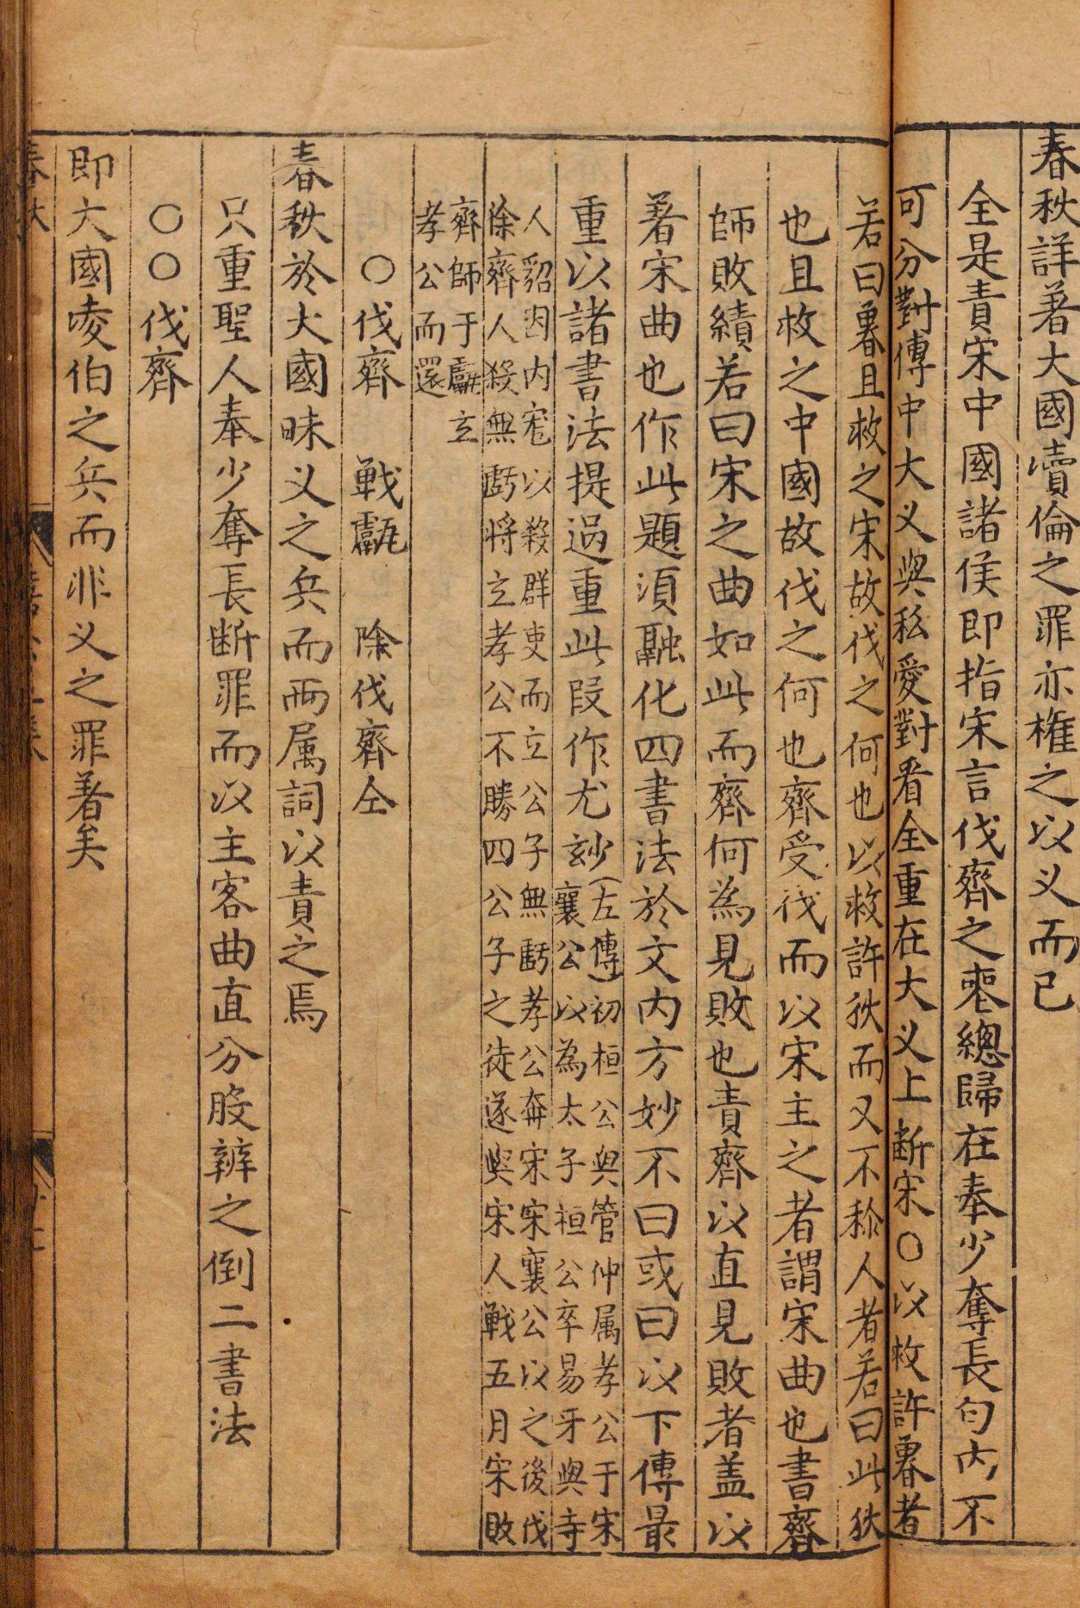 春秋詳著大國瀆倫之罪亦權之以义而已
全是責宋中國諸侯即指宋言伐齊之喪總歸在奉少奪長句内不
可分對傳中大义與私愛對看全重在大义上断宋〇以救許畧者
若曰畧且救之宋故伐之何也以救許狄而又不称人者若曰此狄
也且救之中國故伐之何也齊受伐而以宋主之者謂宋曲也書齊
師敗績若曰宋之曲如此而齊何為見敗也責齊以直見敗者盖以
著宋曲也作此題須融化四書法於文内方妙不曰或曰以下傳最
重以諸書法提過重此段作尤玅(左傳)初桓公與管仲属孝公于宋
襄公以為太子桓公卒易牙與寺
人貂因内寵以殺群吏而立公子無虧孝公奔宋宋襄公以之後伐
徐齊人殺無虧将立孝公不勝四公子之徒遂與宋人戦五月宋敗
齊師于甗立
孝公而還
〇伐齊　戦甗　除伐齊仝
春秩於大國昧义之兵而両属詞以責之焉
只重聖人奉少奪長断罪而以主客曲直分股辨之倒二書法
〇〇伐齊
即大國凌伯之兵而非义之罪著矣